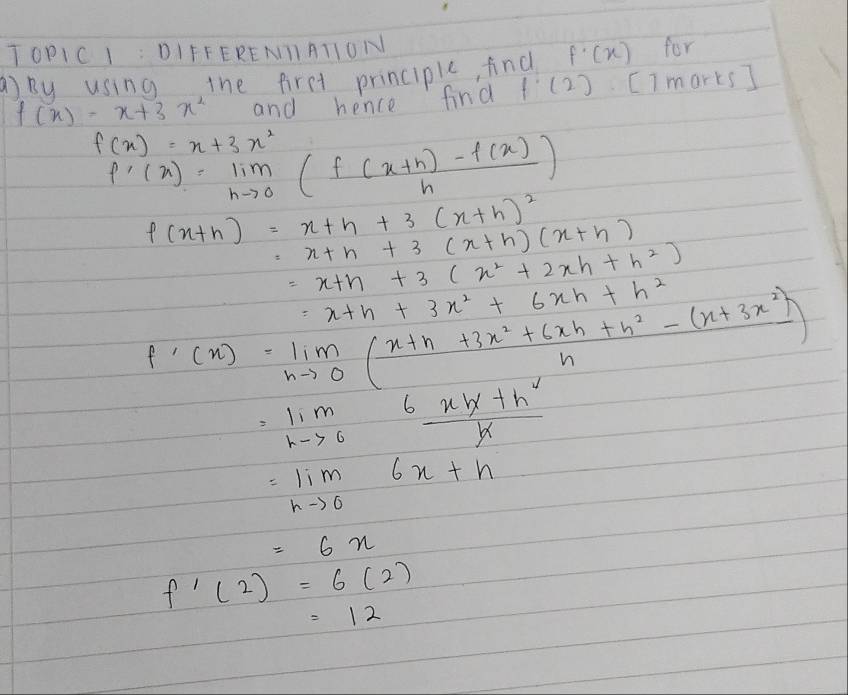 TOPIC 1 : DIFFERENTIATION
a) By using the first principle, find f'(x) for
f(x) = x+3x² and hence find f'(2). [7 marks]
f(x) = x+3x²
f'(x) = lim h→0 ( f(x+h) - f(x) / h )
f(x+h) = x+h + 3 (x+h)²
= x+h + 3 (x+h)(x+h)
= x+h + 3 (x² + 2xh + h²)
= x+h + 3x² + 6xh + h²
f'(x) = lim h→0 ( x+h +3x² + 6xh + h² - (x+3x²) / h )
= lim h→0 6 xh + h² / h
= lim h→0 6x + h
= 6x
f'(2) = 6(2)
= 12